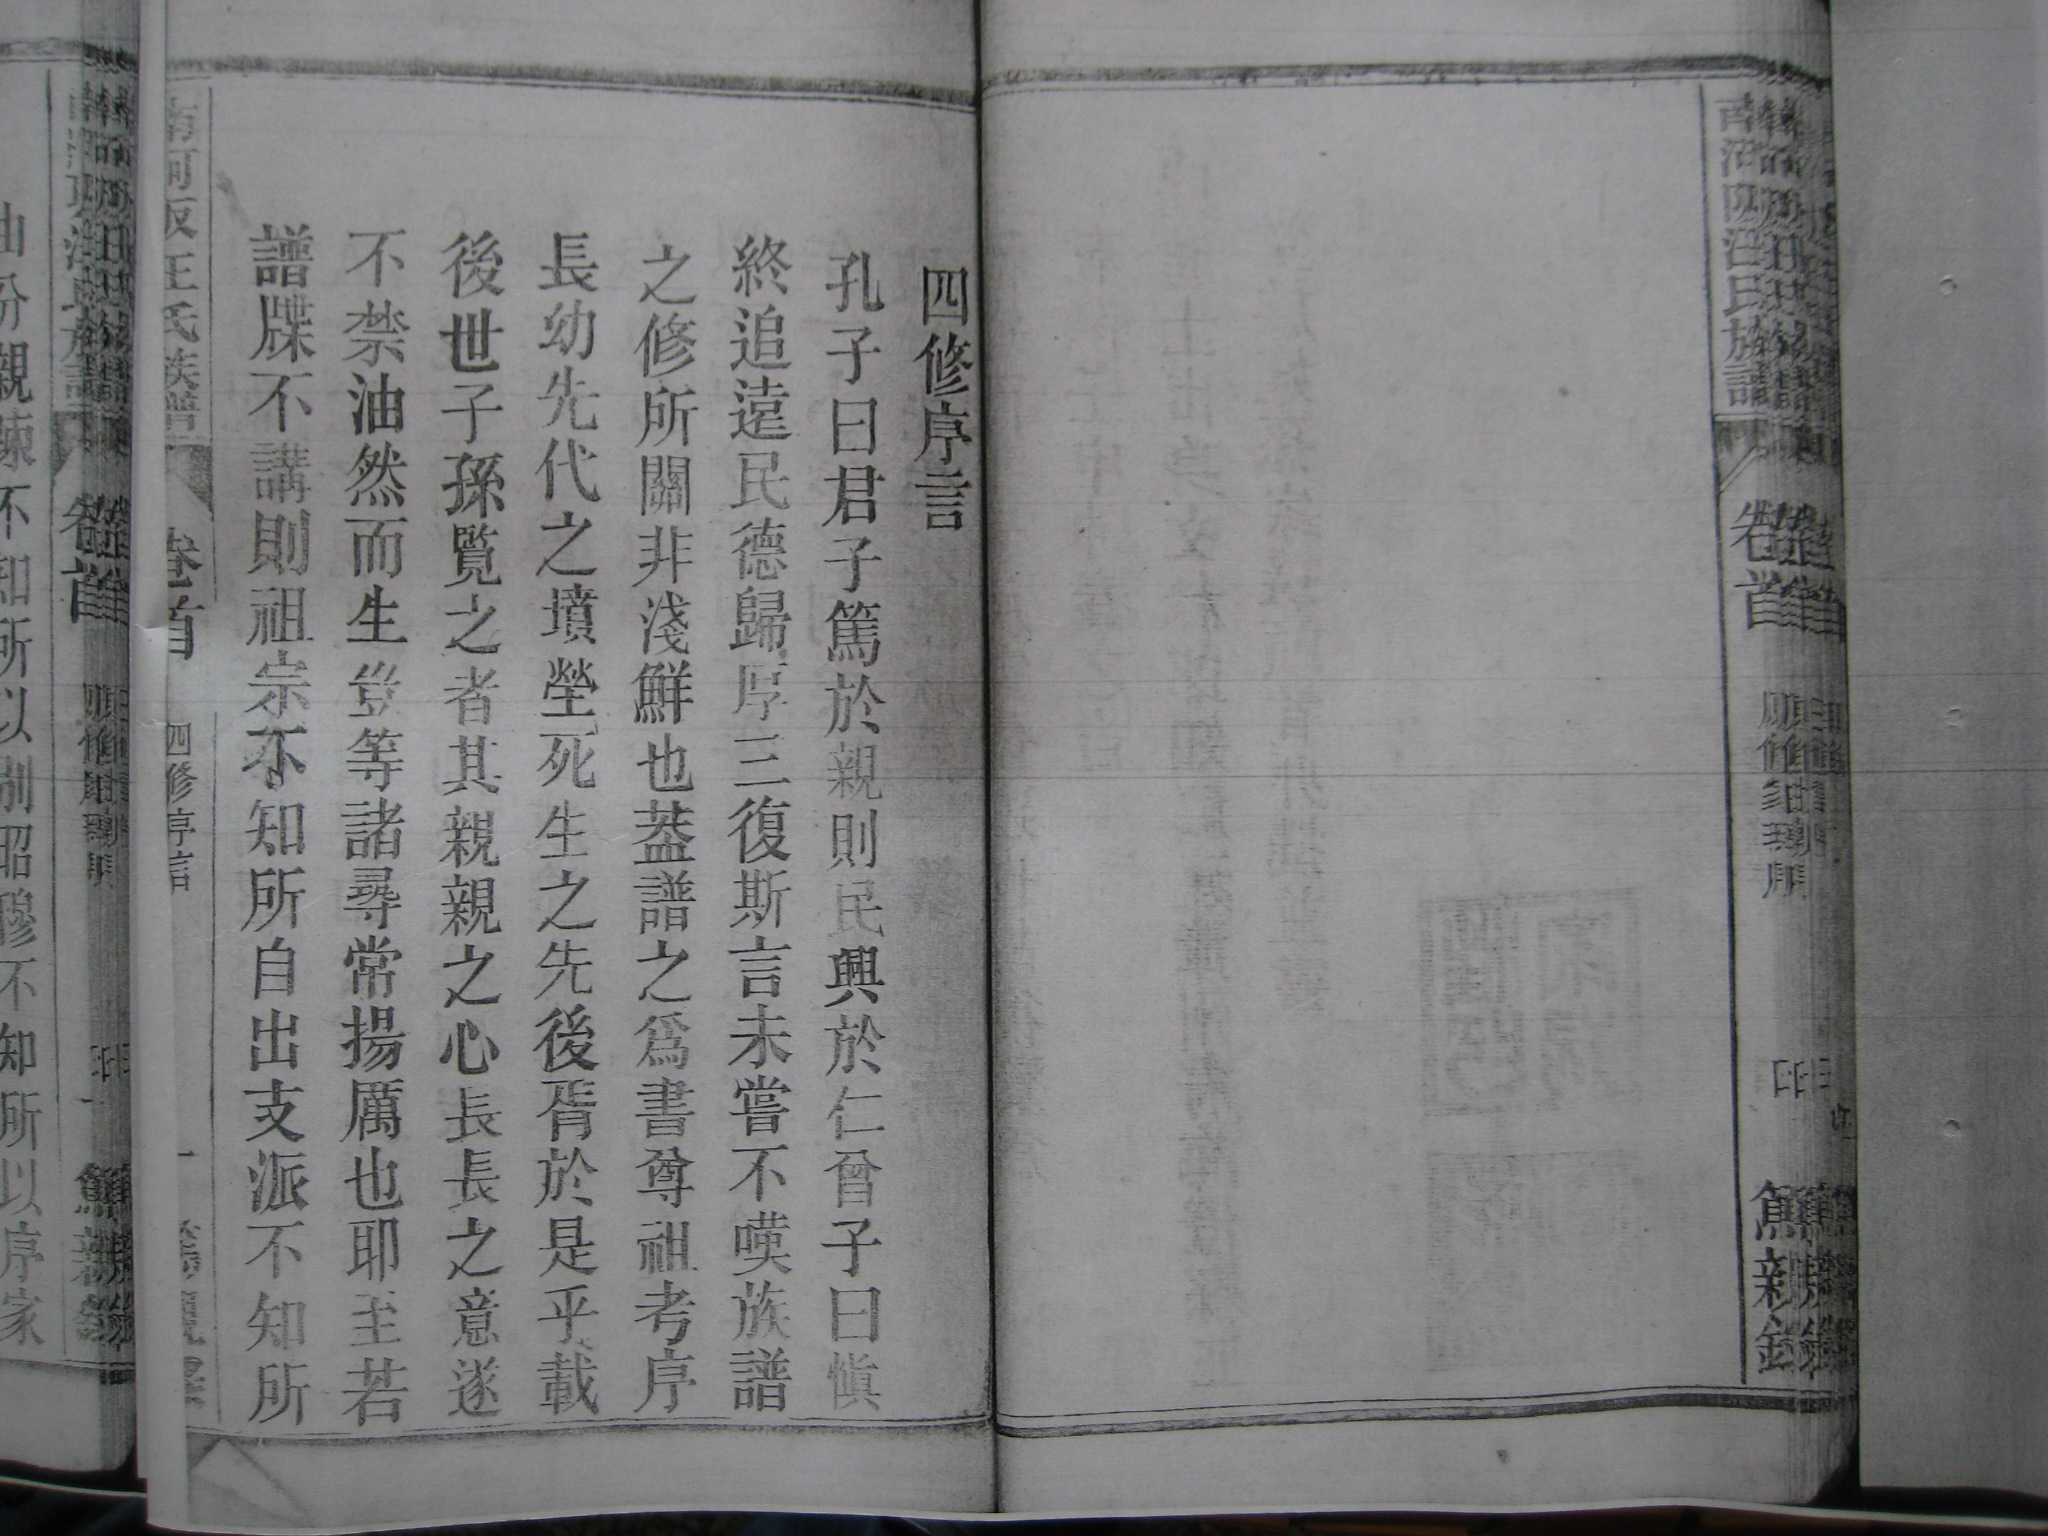 四修序言
孔子曰君子篤於親則民興於仁曾子曰慎
終追遠民德歸厚三復斯言未嘗不嘆族譜
之修所關非淺鮮也葢譜之爲書尊祖考序
長幼先代之墳塋死生之先後胥於是乎載
後世子孫覽之者其親親之心長長之意遂
不禁油然而生豈等諸尋常揚厲也耶主若
譜牒不講則祖宗不知所自出支派不知所
汪氏族譜
卷首
四修序言
一
親疎不知所以別昭穆不知所以序家
卷首